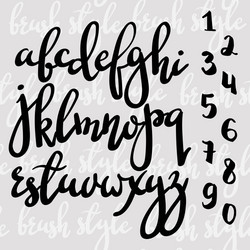 brush style brush
abcdefghi
jklmnopq
rstuvwxyz
1
2
3
4
5
6
7
8
9
0
brush style